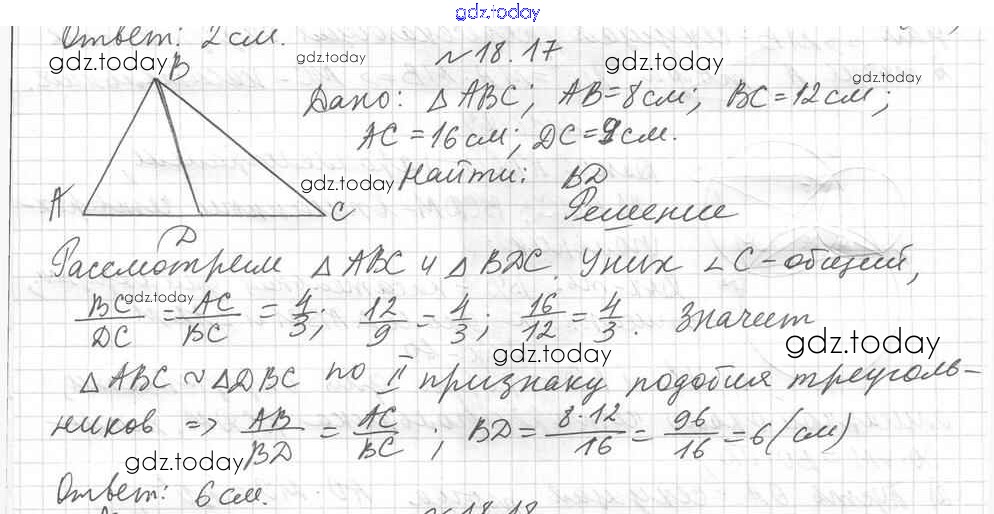 gdz.today
Ответ: 2 см.
gdz.today
N 18.17
gdz.today
gdz.today
B
Дано: △ABC; AB=8см; BC=12см;
AC=16см; DC=9см.
gdz.today
Найти: BD
A
C
Решение
D
Рассмотрим △ABC и △BDC. У них ∠C-общий,
BC/DC = AC/BC = 4/3; 12/9 = 4/3; 16/12 = 4/3. Значит
gdz.today
gdz.today
gdz.today
△ABC ~ △DBC по II признаку подобия треуголь-
ников => AB/BD = AC/BC; BD = 8·12/16 = 96/16 = 6 (см)
gdz.today
gdz.today
Ответ: 6 см.
N 18.18